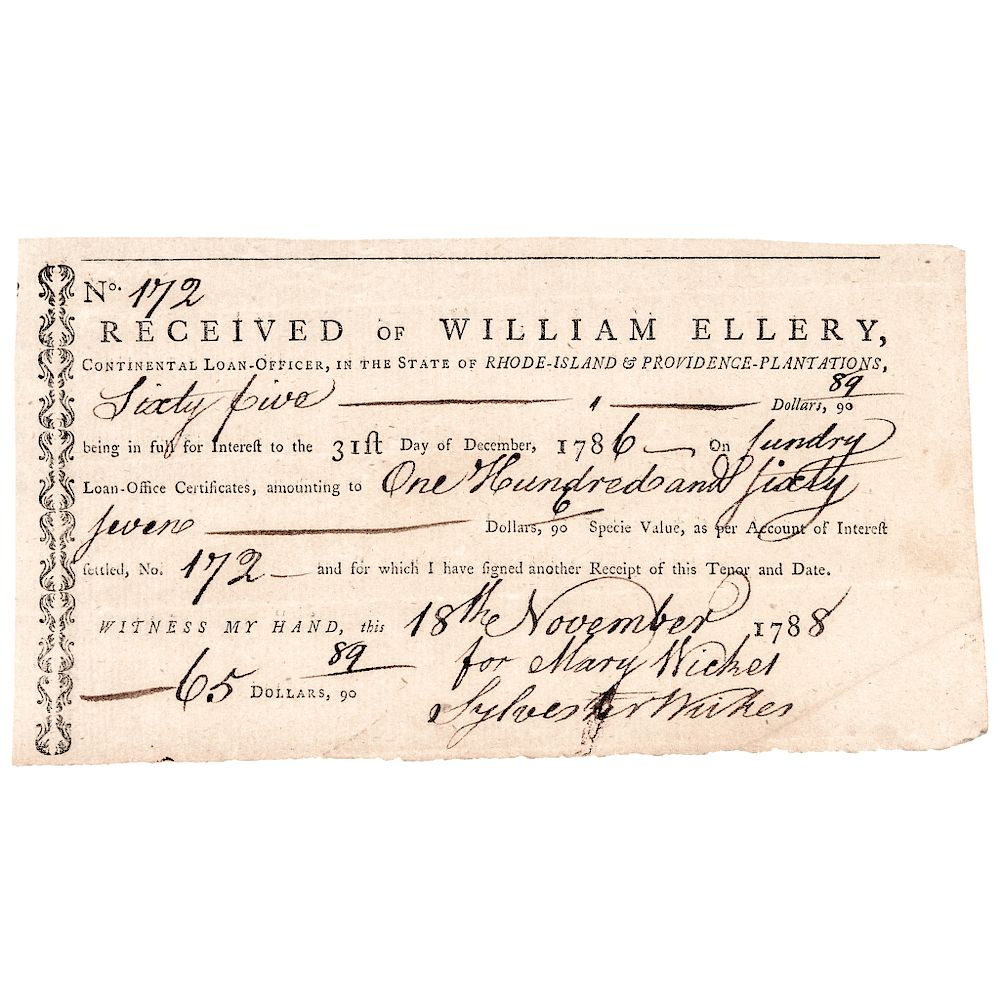 No. 172
RECEIVED OF WILLIAM ELLERY,
CONTINENTAL LOAN-OFFICER, IN THE STATE OF RHODE-ISLAND & PROVIDENCE-PLANTATIONS,
Sixty five — " — Dollars, 89/90
being in full for Intereſt to the 31ſt Day of December, 1786 — On ſundry
Loan-Office Certificates, amounting to One Hundred and Sixty
ſeven — Dollars, 6/90 Specie Value, as per Account of Intereſt
ſettled, No. 172 — and for which I have signed another Receipt of this Tenor and Date.
WITNESS MY HAND, this 18th November 1788
— 65 89/90 DOLLARS, for Mary Wickes
Sylvester Wickes